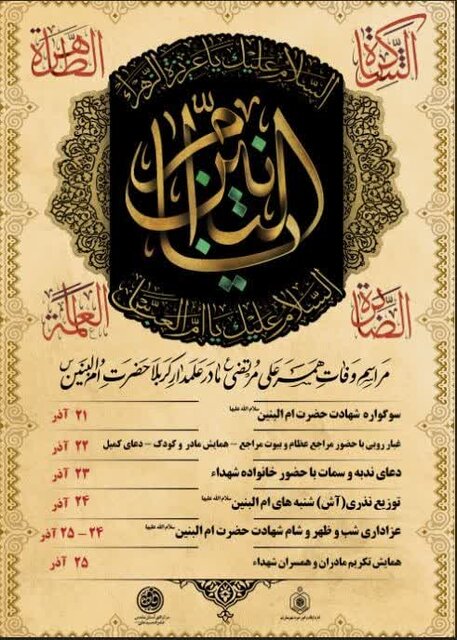 الشاکرة
الطاهرة
السلام علیک یا عزیزة الزهراء
یا ام البنین
السلام علیک یا ام العباس
الصابرة
العالمة
مراسم وفات همسر علی مرتضی ع مادر علمدار کربلا حضرت ام البنین س
سوگواره شهادت حضرت ام البنین سلام الله علیها ۲۱ آذر
غبارروبی با حضور مراجع عظام و بیوت مراجع - همایش مادر و کودک - دعای کمیل ۲۲ آذر
دعای ندبه و سمات با حضور خانواده شهداء ۲۳ آذر
توزیع نذری (آش) شنبه های ام البنین سلام الله علیها ۲۴ آذر
عزاداری شب و ظهر و شام شهادت حضرت ام البنین سلام الله علیها ۲۴ - ۲۵ آذر
همایش تکریم مادران و همسران شهداء ۲۵ آذر